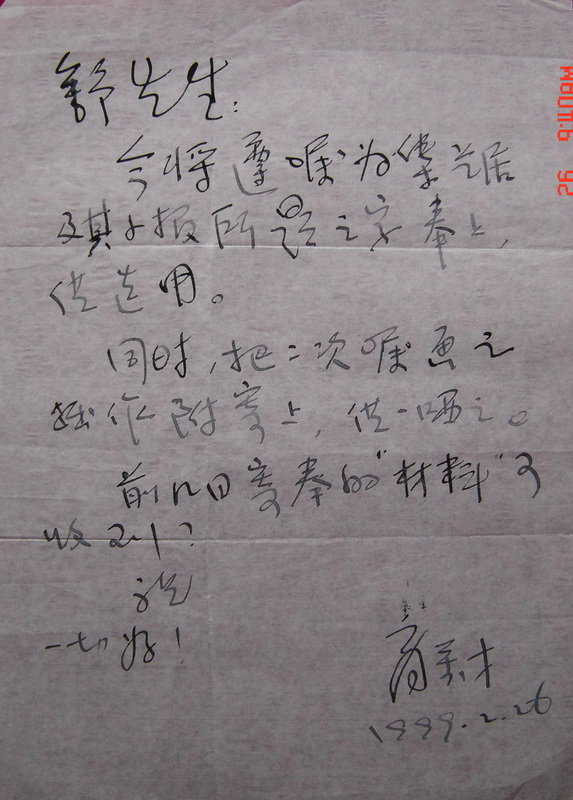 舒先生：
今将遵嘱为集兰居
及其小报所题之字奉上，
供选用。
同时，把二次嘱画之
拙作附寄上，供一哂之。
前几日寄奉的“材料”可
收到？
祝
一切好！
1999.2.26